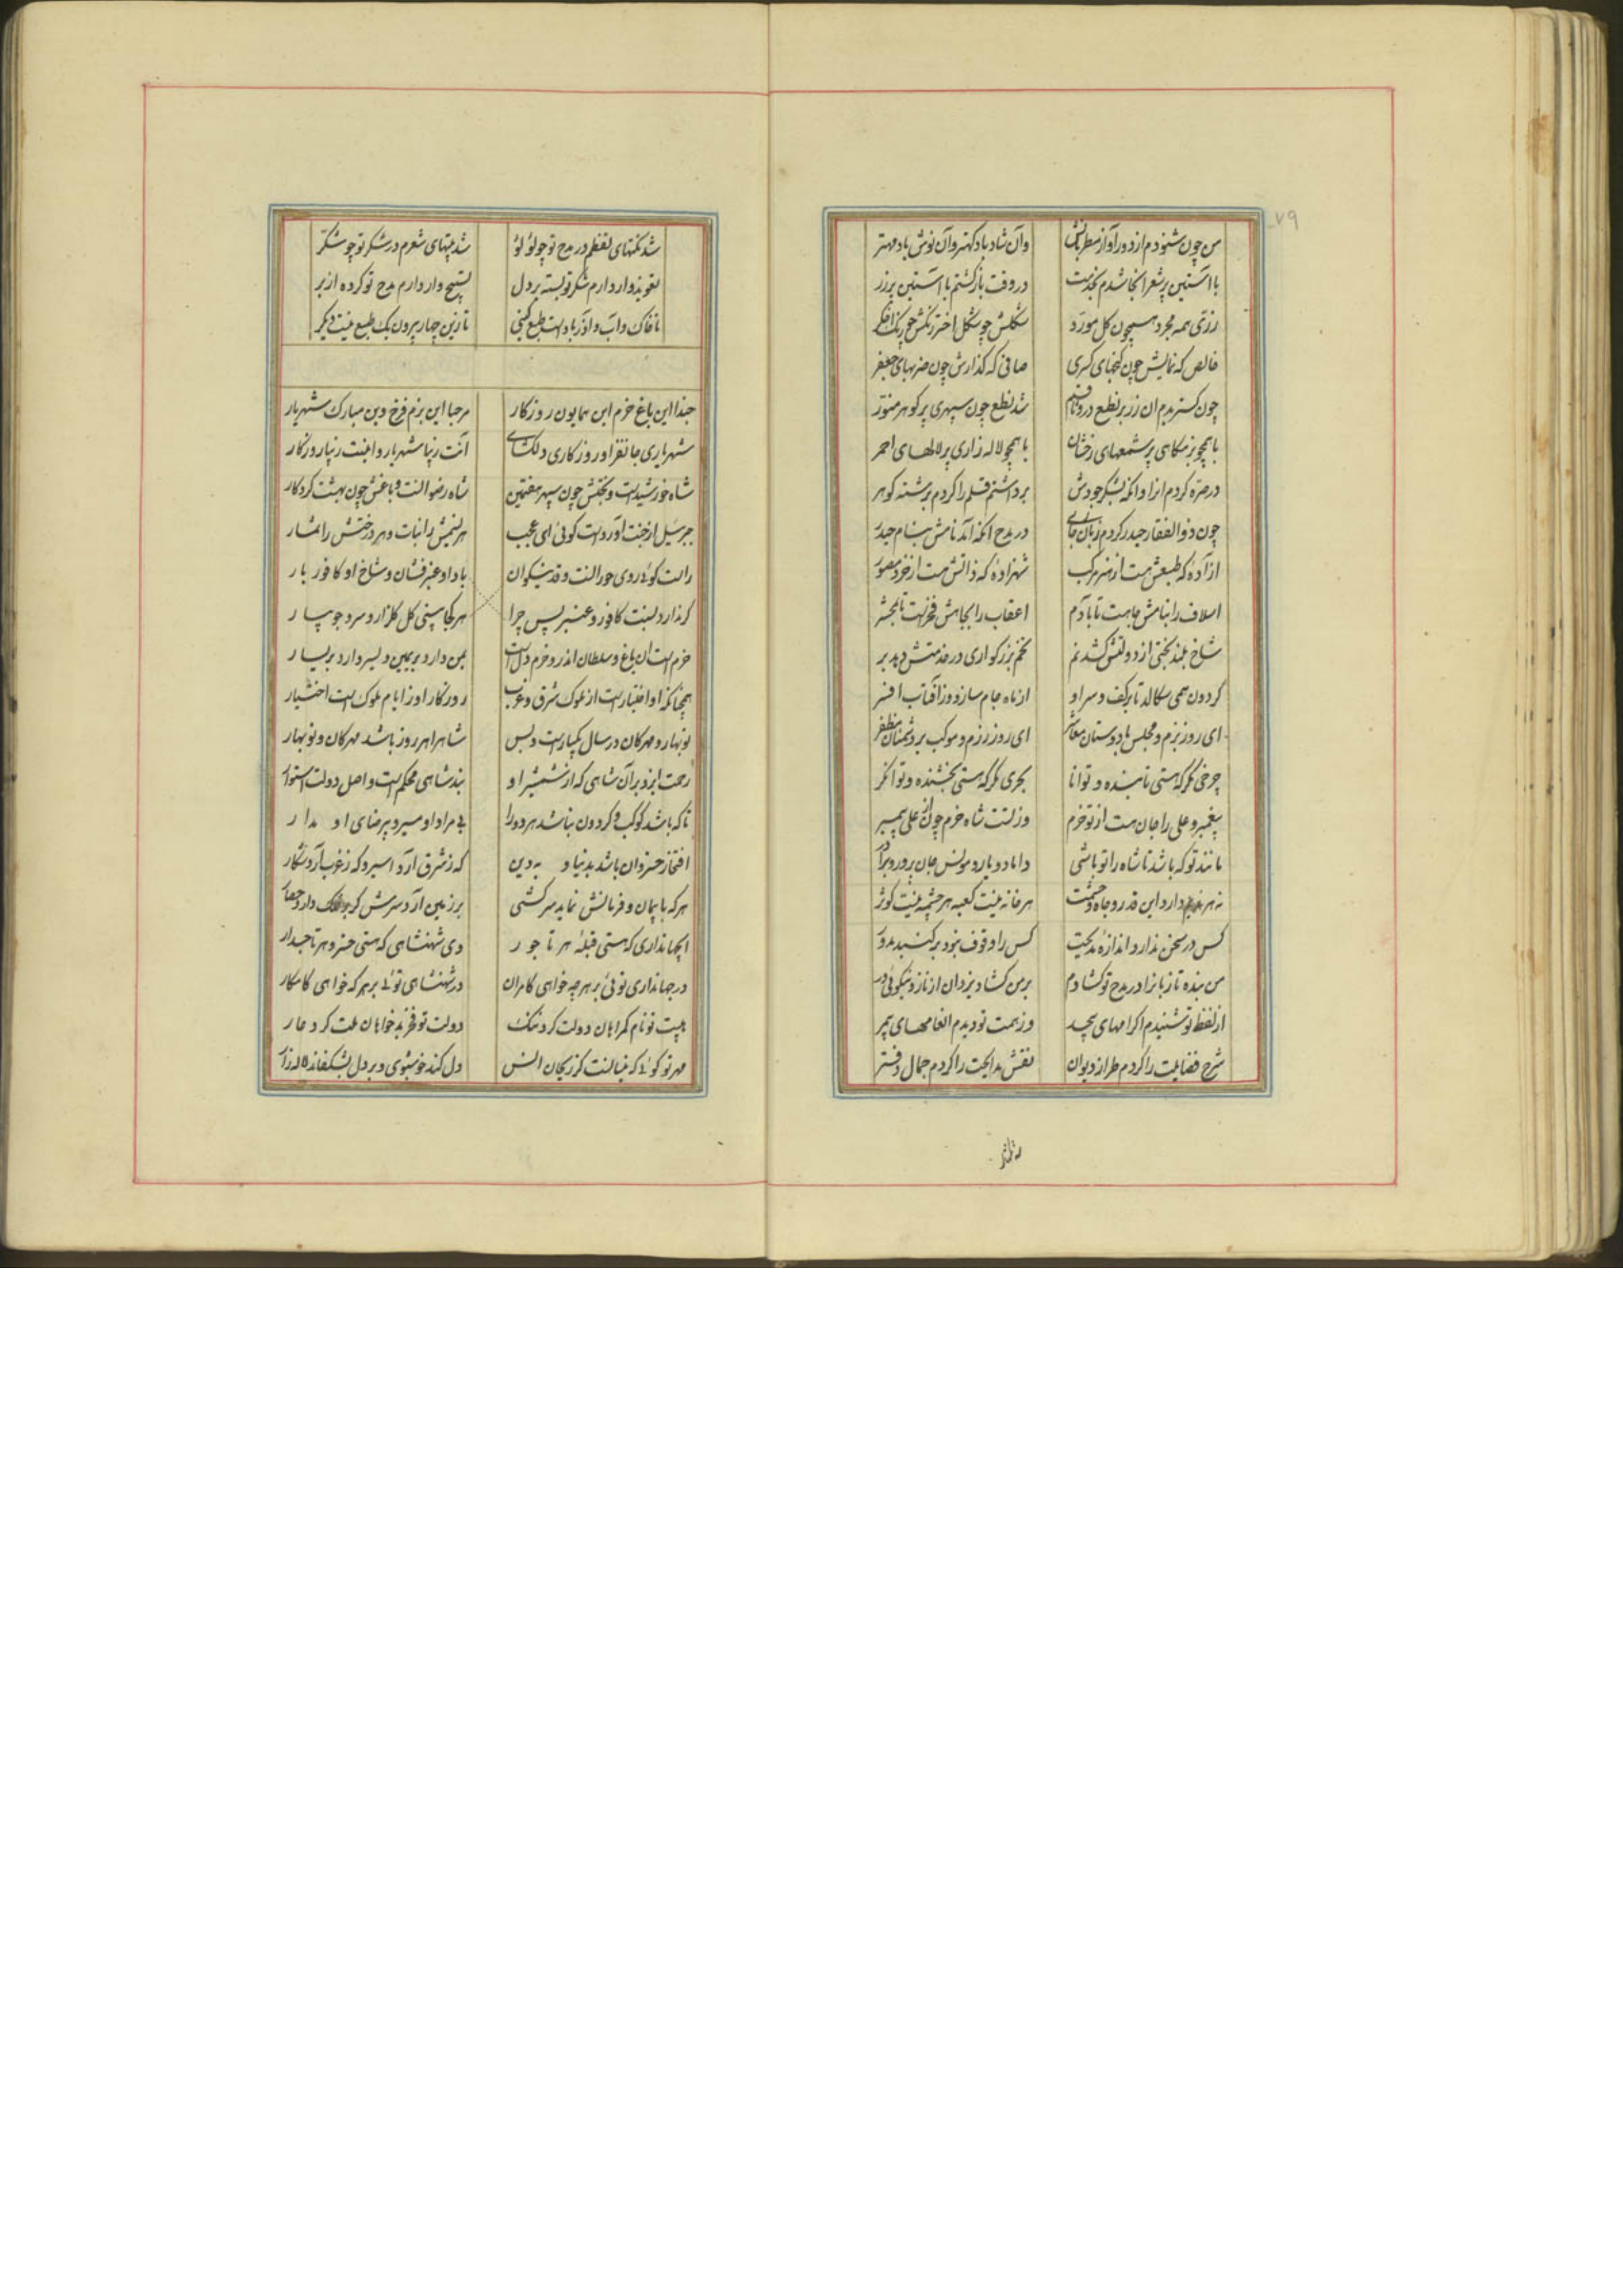 ۷۹
من چون شنودم از دور آواز مطربانش وآن شاد باد کهتر وآن نوش باد مهتر
با آستین پر شعر آنجا شدم بخدمت در وقت باز کشتم با آستین پر زر
زری همه مجرد همچون کل مورد شکلش چو شکل اختر رنکش چو رنک اخکر
خالص که نمایش چون کنجهای کسری صافی که کذارش چون ضربهای جعفر
چون کستریدم آن زر بر نطع در وثاقم شد نطع چون سپهری پر کوهر منور
یا همچو بزمکاهی پر شمعهای رخشان یا همچو لاله زاری پر لالهای احمر
در صره کردم آنرا وانکه بشکر جودش برداشتم قلم را کردم برشته کوهر
چون ذوالفقار حیدر کردم زبان در مدح آنکه آمد نامش بنام حیدر
آزاده که طبعش هست از هنر مرکب شهزاده که ذاتش هست از خرد مصور
اسلاف را بنامش جاهست تا بآدم اعقاب را بجاهش فخرست تا بمحشر
شاخ بلند بختی از دولتش کشد نم تخم بزرکواری در خدمتش دهد بر
کردون همی سکالد تا بر کف و سر او از ماه جام سازد وز آفتاب افسر
ای روز بزم و مجلس با دوستان معاشر ای روز رزم و موکب بر دشمنان مظفر
چرخی مکر که هستی تابنده و توانا بحری مکر که هستی بخشنده و توانکر
پیغمبر و علی را جان هست از تو خرم وز تست شاه خرم چون از علی پیمبر
مانند تو که باشد تا شاه را تو باشی داماد و یار و مونس جان پرور و برادر
نه هر ندیم دارد این قدر و جاه و حشمت هر خانه نیست کعبه هر چشمه نیست کوثر
کس در سخن ندارد اندازه مدیحت کس را وقوف نبود بر کنبد مدور
من بنده تا زبانرا در مدح تو کشادم بر من کشاد یزدان از ناز و نیکوئی در
از لفظ تو شنیدم اکرامهای بیحد وز همت تو دیدم انعامهای بیمر
شرح فضایلت را کردم طراز دیوان نقش مدایحت را کردم جمال دفتر
شد نکتهای لفظم در مدح تو چو لؤلؤ شد بیتهای شعرم در شکر تو چو شکر
تعویذ وار دارم شکر تو بسته بر دل تسبیح وار دارم مدح تو کرده از بر
تا خاک و آب و آذر با دست طبع کیتی تا زین چهار بیرون یک طبع نیست دیکر
حبذا این باغ خرم این همایون روزکار مرحبا این بزم فرخ وین مبارک شهریار
شهریاری جانفزا و روزکاری دلکشای آنت زیبا شهریار و اینت زیبا روزکار
شاه خورشیدست و تختش چون سپهر هفتمین شاه رضوانست و باغش چون بهشت کردکار
جبرئیل از جنت آوردست کوئی ای عجب هر نسیمش را نبات و هر درختش را ثمار
راست کوئی روی حورانست و قد نیکوان باد او عنبر فشان و شاخ او کافور بار
کر ندارد نسبت کافور و عنبر پس چرا هر کجا بینی کل کلزار و سرو جویبار
خرم است آن باغ و سلطان اندرو خرم دل است یمن دارد بر یمین و یسر دارد بر یسار
همچنانکه او اختیارست از ملوک شرق و غرب روزکار او ز ایام ملوک است اختیار
نوبهار و مهرکان در سال یکبارست و بس شاه را هر روز باشد مهرکان و نوبهار
رحمت ایزد بر آن شاهی که از شمشیر او بند شاهی محکم است و اصل دولت استوار
تا که باشد کوکب و کردون نباشد هر دو را بی مراد او مسیر و بی رضای او مدار
افتخار خسروان باشد بدنیا و بدین که ز شرق آرد اسیر و که ز غرب آرد شکار
هر که با پیمان و فرمانش نماید سرکشی بر زمین آرد سرش کر بر فلک دارد حصار
ای جهانداری که هستی قبله هر تاجور وی شهنشاهی که هستی خسرو هر تاجدار
در جهانداری توئی بر هر چه خواهی کامران در شهنشاهی توئی بر هر که خواهی کامکار
هیبت تو نام کمراهان دولت کرد ننک دولت تو فخر بدخواهان ملت کرد عار
مهر تو کوئی که خیالست کز ریحان انس دل کند خوشبوی و بر دل بشکفاند لاله زار